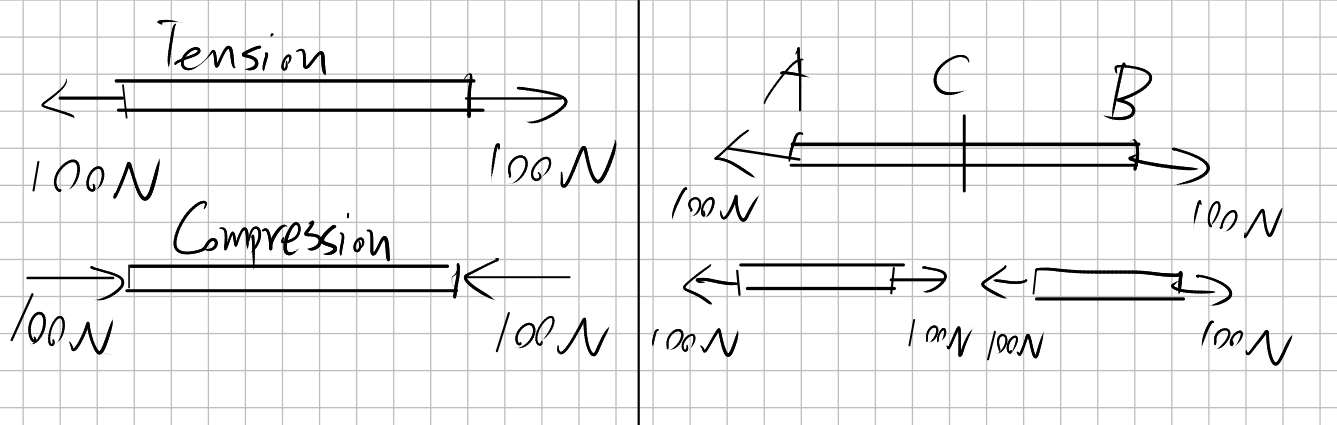 Tension
100N 100N
Compression
100N 100N
A C B
100N 100N
100N 100N 100N 100N